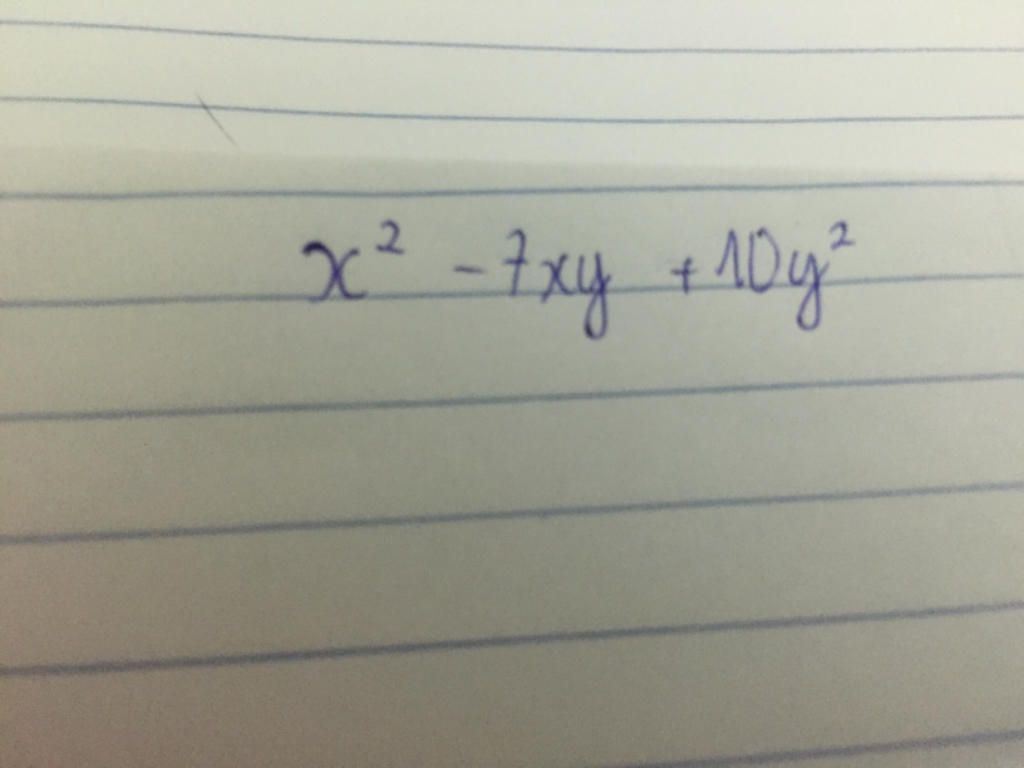 x² - 7xy + 10y²